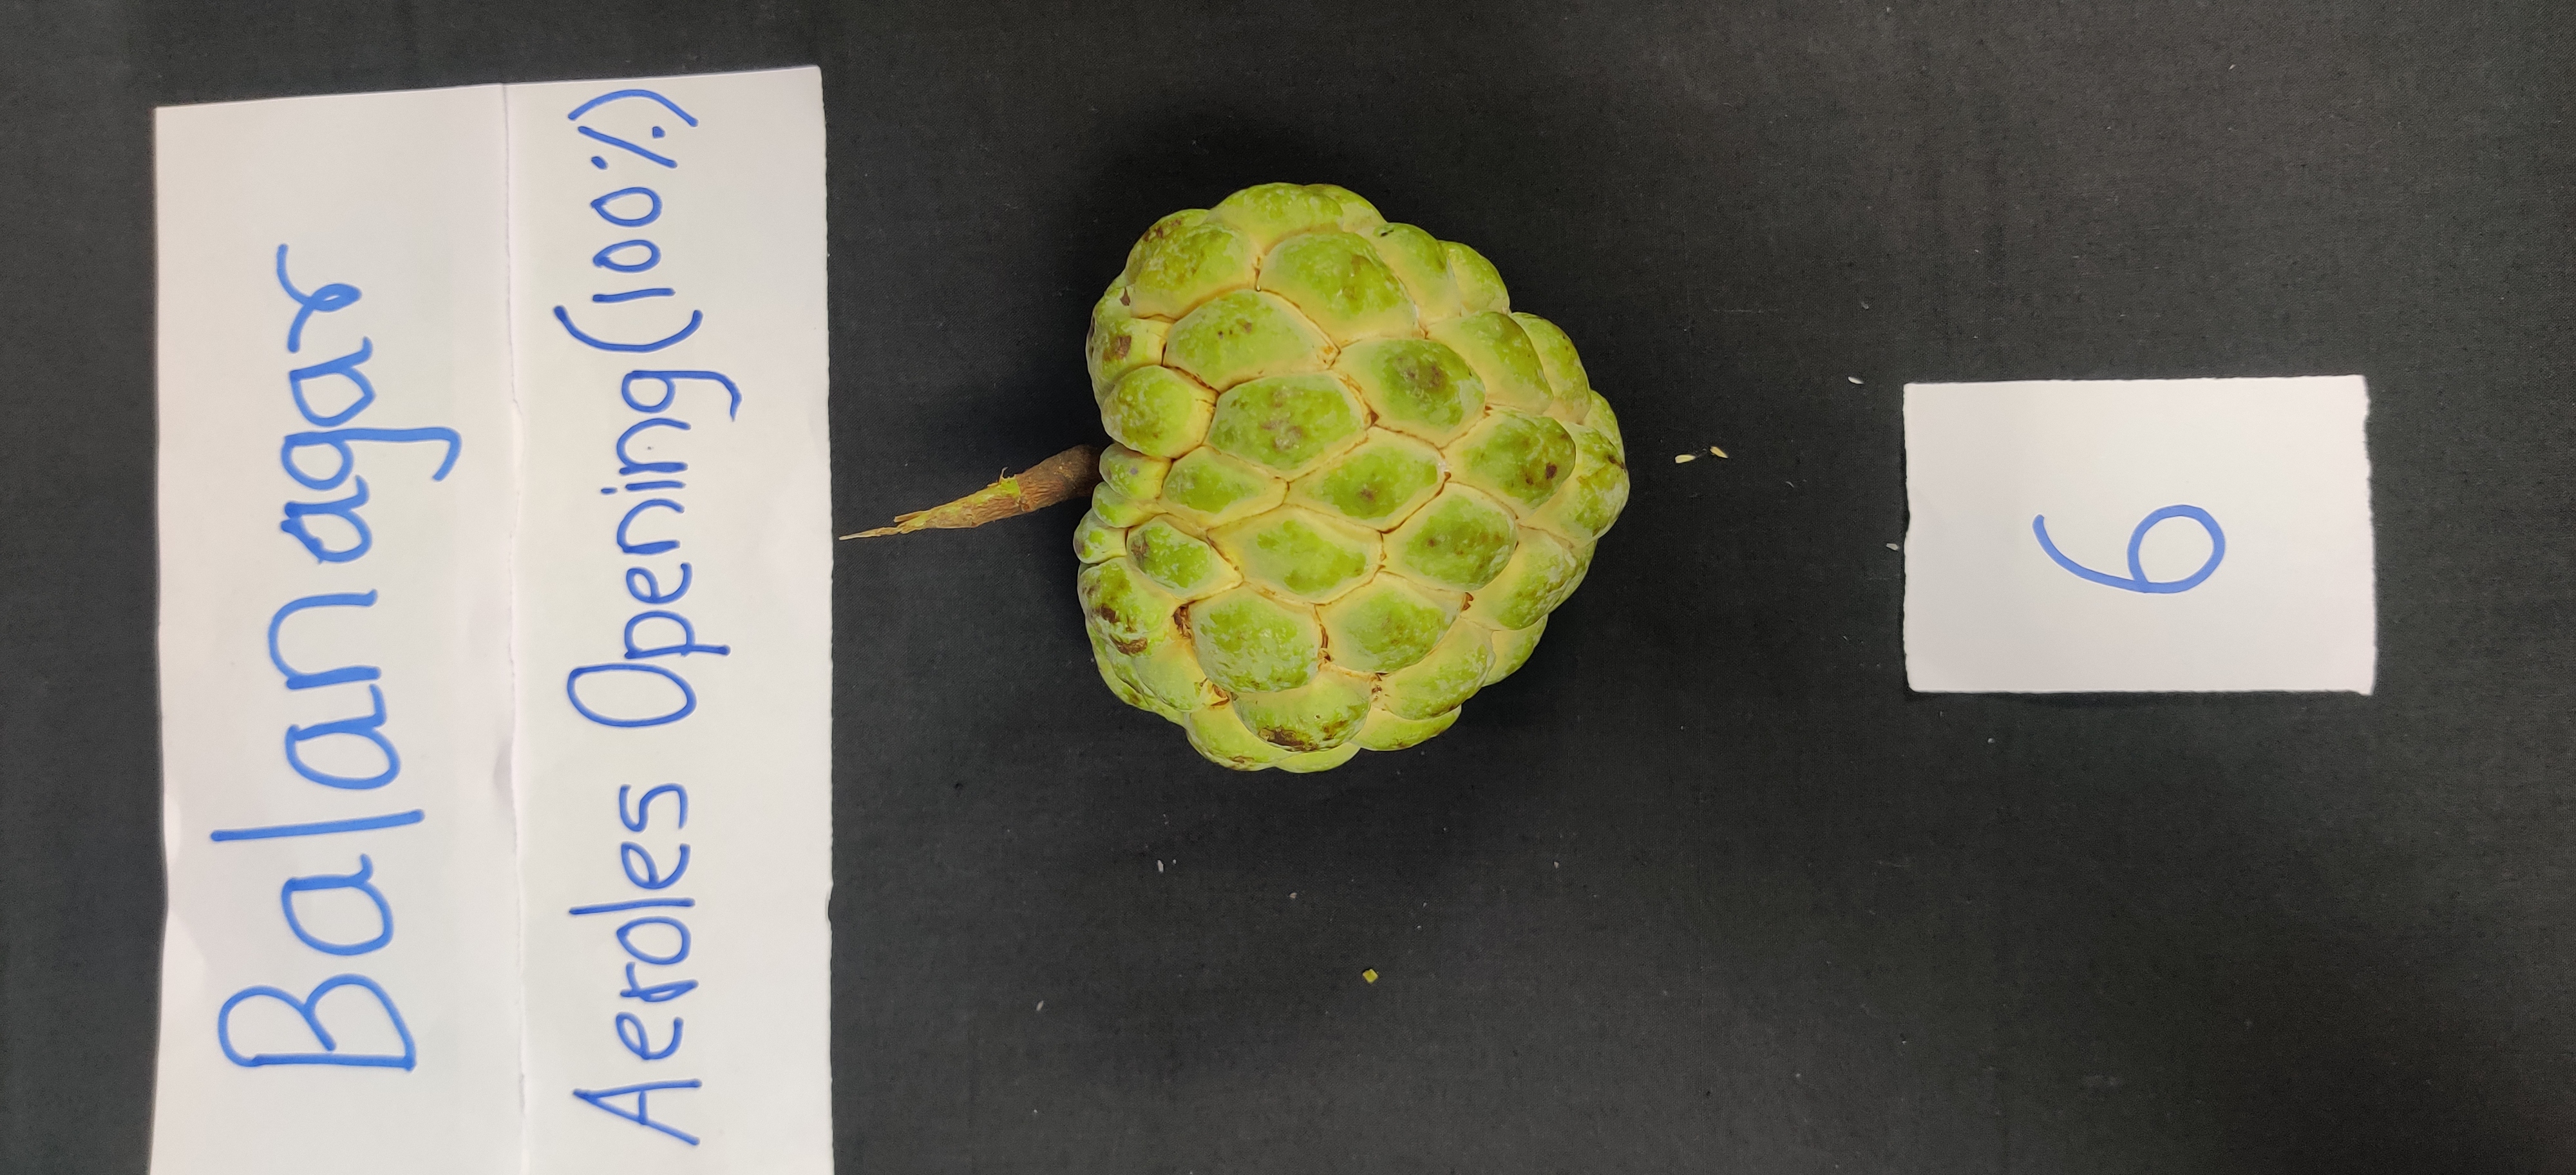 Balanagar
Aeroles Opening (100%)
6